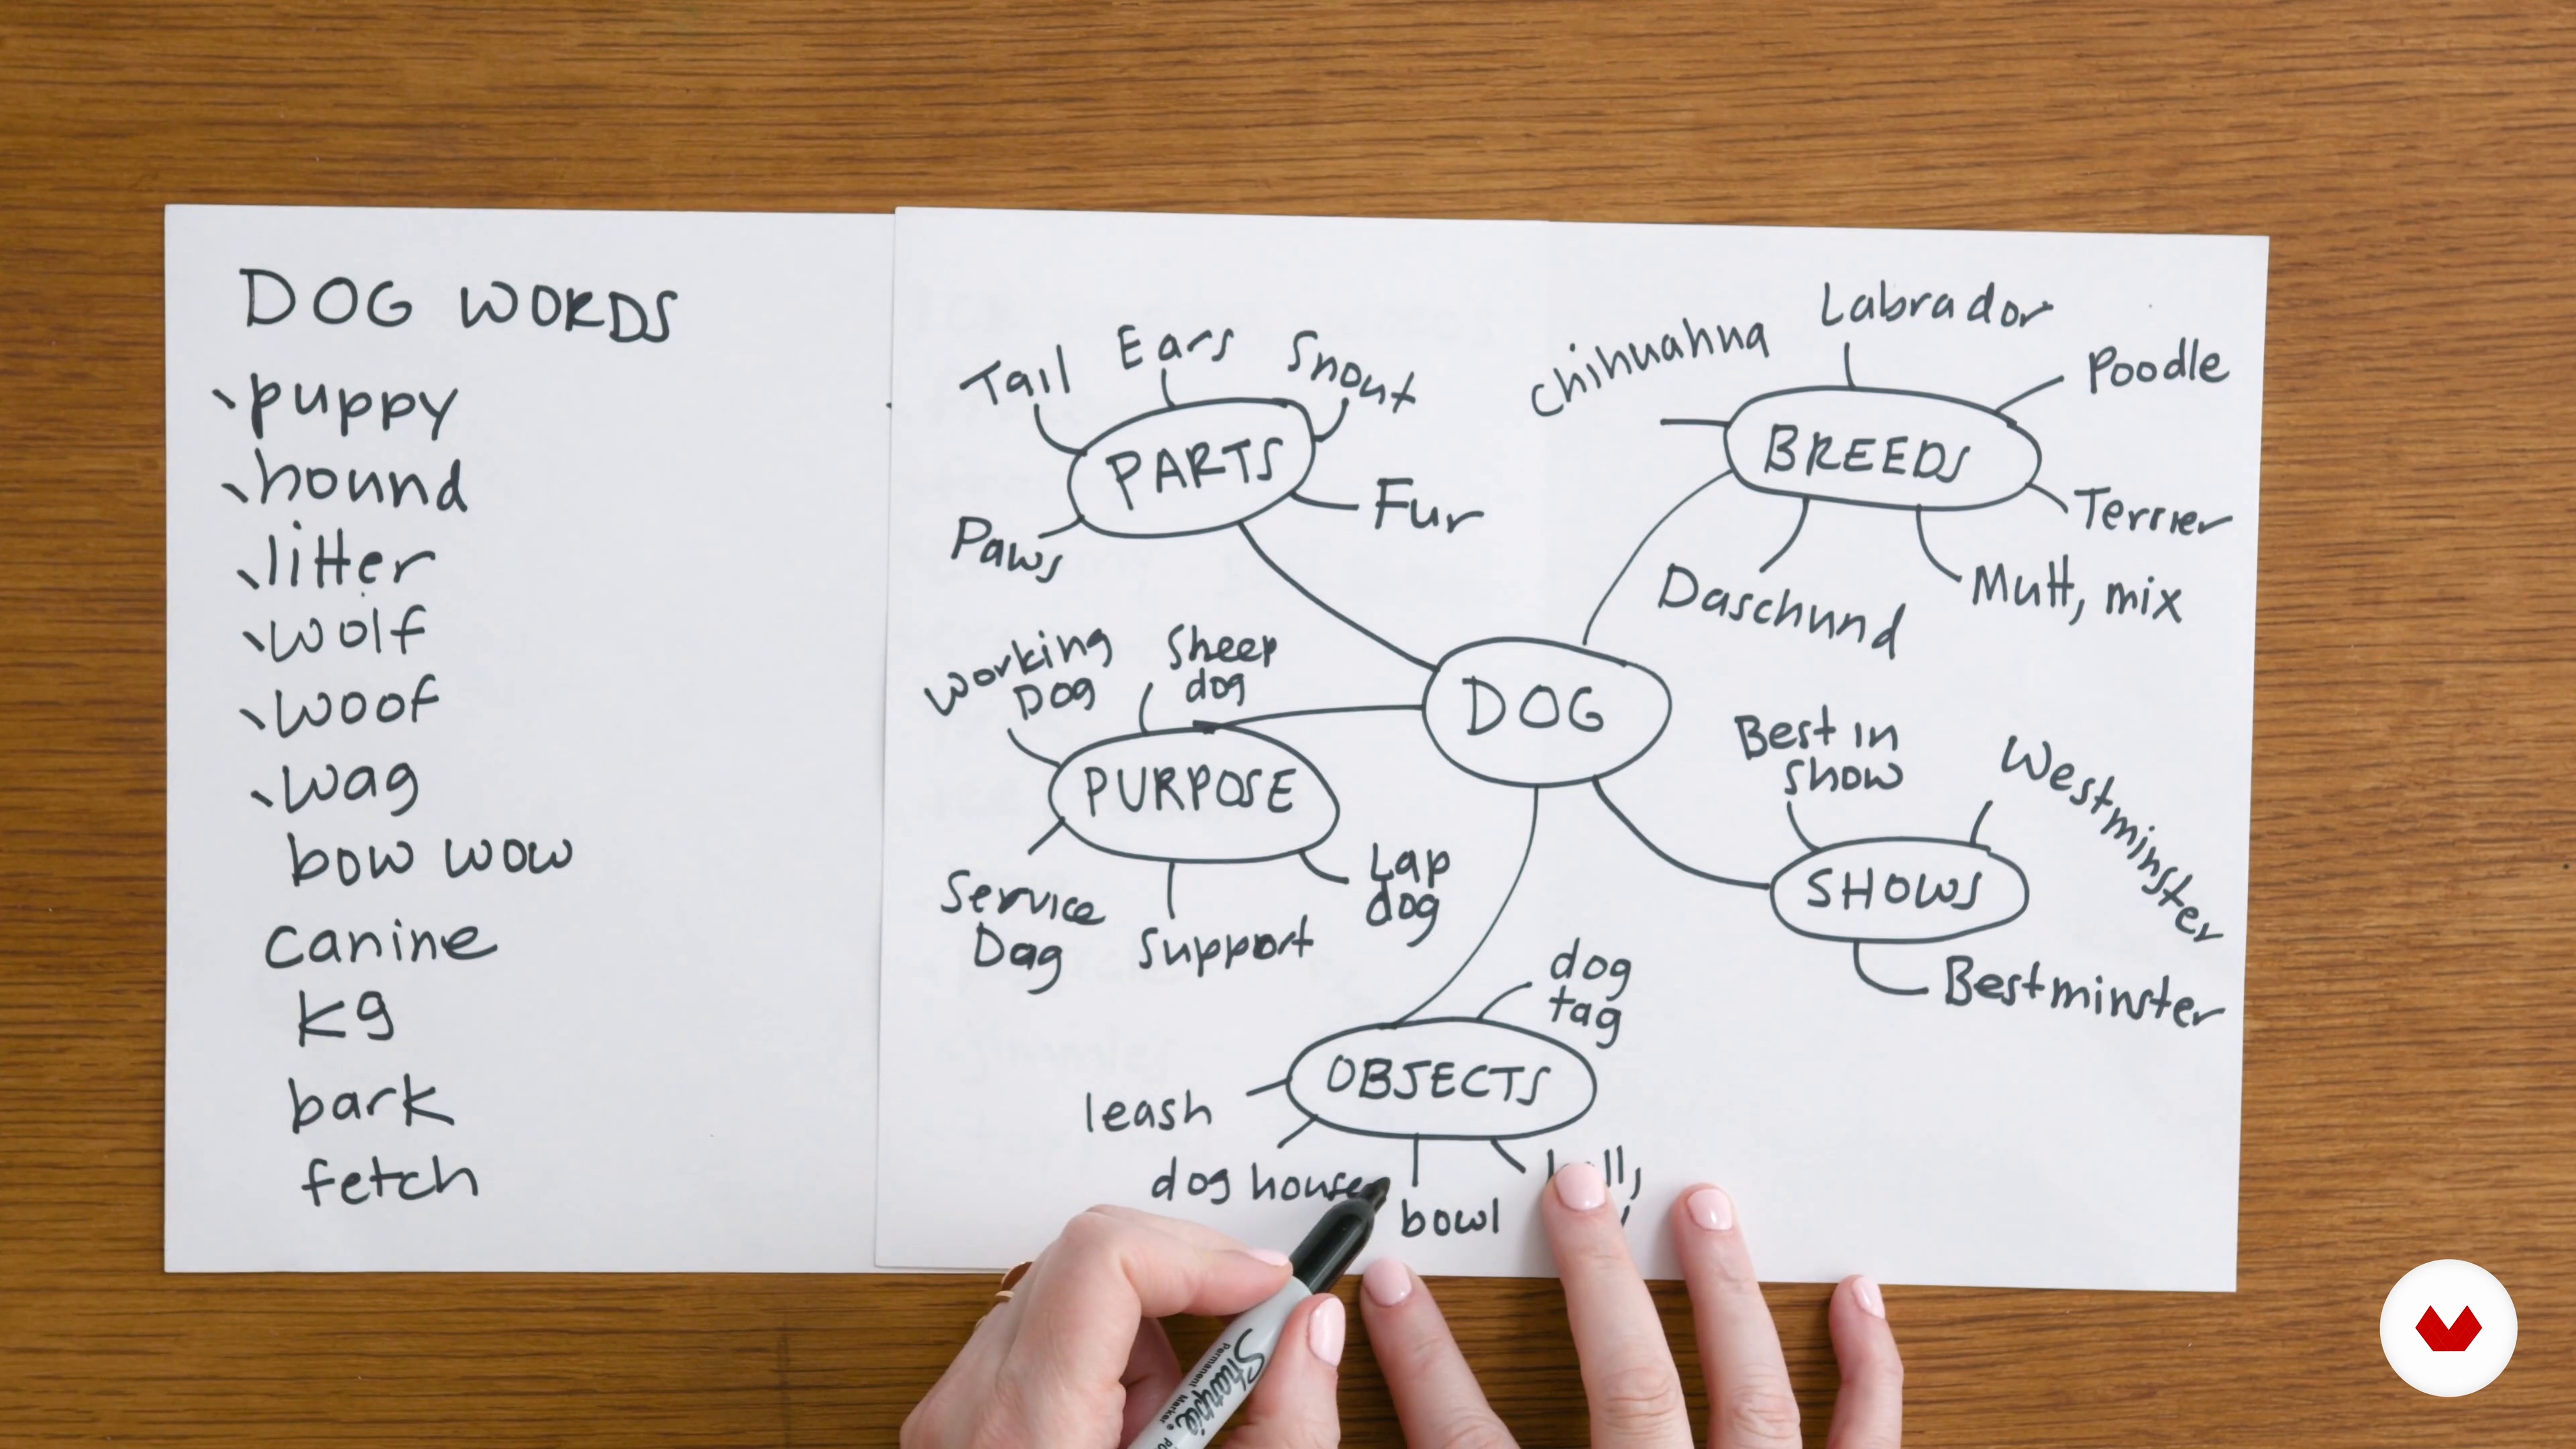 DOG WORDS
puppy
hound
litter
wolf
woof
wag
bow wow
canine
K9
bark
fetch
Tail
Ears
Snout
PARTS
Fur
Paws
Chihuahua
Labrador
Poodle
BREEDS
Terrier
Mutt, mix
Daschund
Working
Dog
Sheep
dog
DOG
PURPOSE
Service
Dog
Support
Lap
dog
Best in
show
Westminster
SHOWS
Bestminster
dog
tag
OBJECTS
leash
dog house
bowl
Sharpie
Permanent Marker